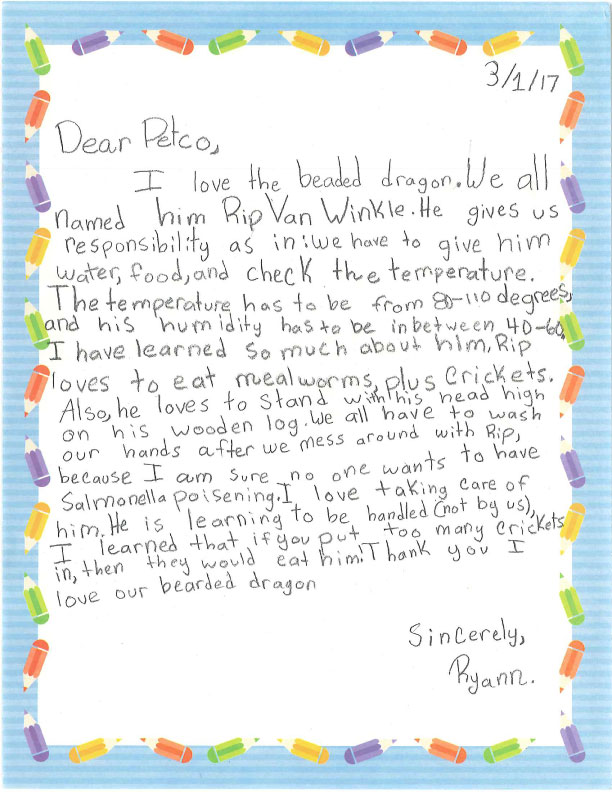 3/1/17
Dear Petco,
I love the beaded dragon. We all
named him Rip Van Winkle. He gives us
responsibility as in: we have to give him
water, food, and check the temperature.
The temperature has to be from 80-110 degrees,
and his humidity has to be inbetween 40-60.
I have learned so much about him, Rip
loves to eat mealworms, plus Crickets.
Also, he loves to stand with his head high
on his wooden log. We all have to wash
our hands after we mess around with Rip,
because I am sure no one wants to have
Salmonella poisening. I love taking care of
him. He is learning to be handled (not by us),
I learned that if you put too many crickets
in, then they would eat him! Thank you I
love our bearded dragon
Sincerely,
Ryann.